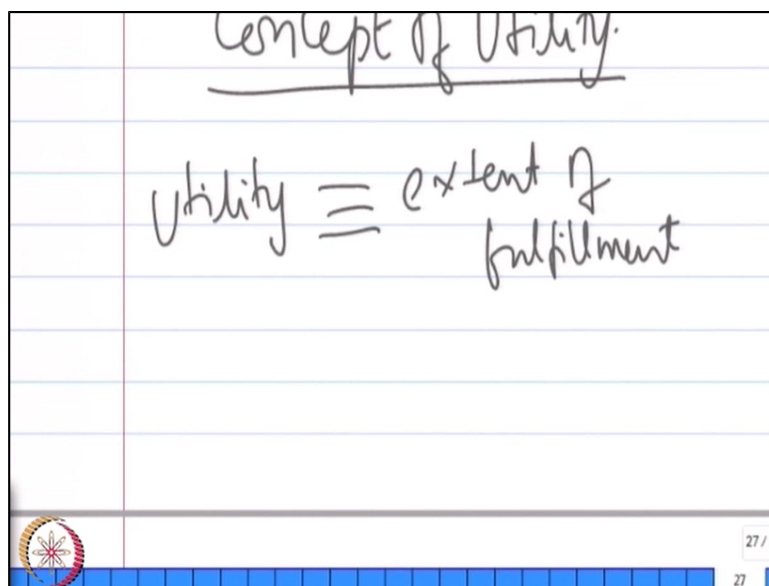 Concept of Utility.
Utility ≡ extent of
fulfillment
27 /
27